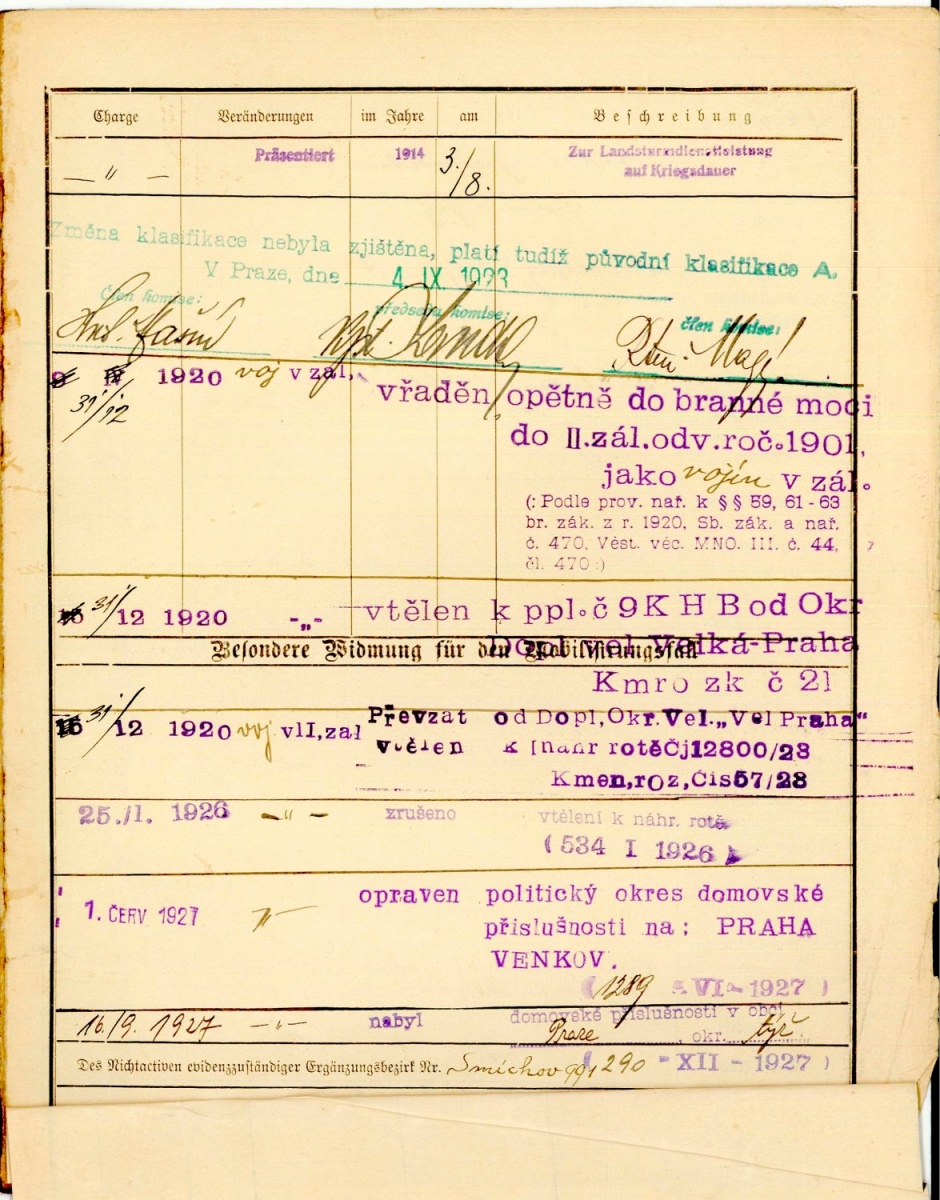 Charge Veränderungen im Jahre am Beschreibung
— " — Präsentiert 1914 3./8. Zur Landsturmdienstleistung
auf Kriegsdauer
Změna klasifikace nebyla zjištěna, platí tudíž původní klasifikace A.
V Praze, dne 4 IX 1923
člen komise: předseda komise: člen komise:
1920 voj v zál,
31/12
vřaděn opětně do branné moci
do II.zál.odv.roč.1901,
jako vojín v zál.
(: Podle prov. nař. k §§ 59, 61-63
br. zák. z r. 1920, Sb. zák. a nař.
č. 470, Věst. věc. MNO. III. č. 44,
čl. 470 :)
31/12 1920 -„- vtělen k ppl.č 9 K H B od Okr
Dopl vel Velká-Praha
Besondere Widmung für den Mobilisirungsfall
Kmro zk č 21
31/12 1920 voj vII,zal Převzat od Dopl,Okr.Vel.„Vel Praha“
vtělen k náhr rotě Čj12800/23
Kmen,roz,Čís57/23
25./I. 1926 — " — zrušeno vtělení k náhr. rotě
(534 I 1926)
1. ČERV 1927 " — opraven politický okres domovské
příslušnosti na: PRAHA
VENKOV.
(1289 - VI - 1927)
16./9. 1927 — " — nabyl domovské příslušnosti v obci
Praze, okr. týž.
Des Nichtactiven evidenzzuständiger Ergänzungsbezirk Nr. Smíchov 290 - XII - 1927)